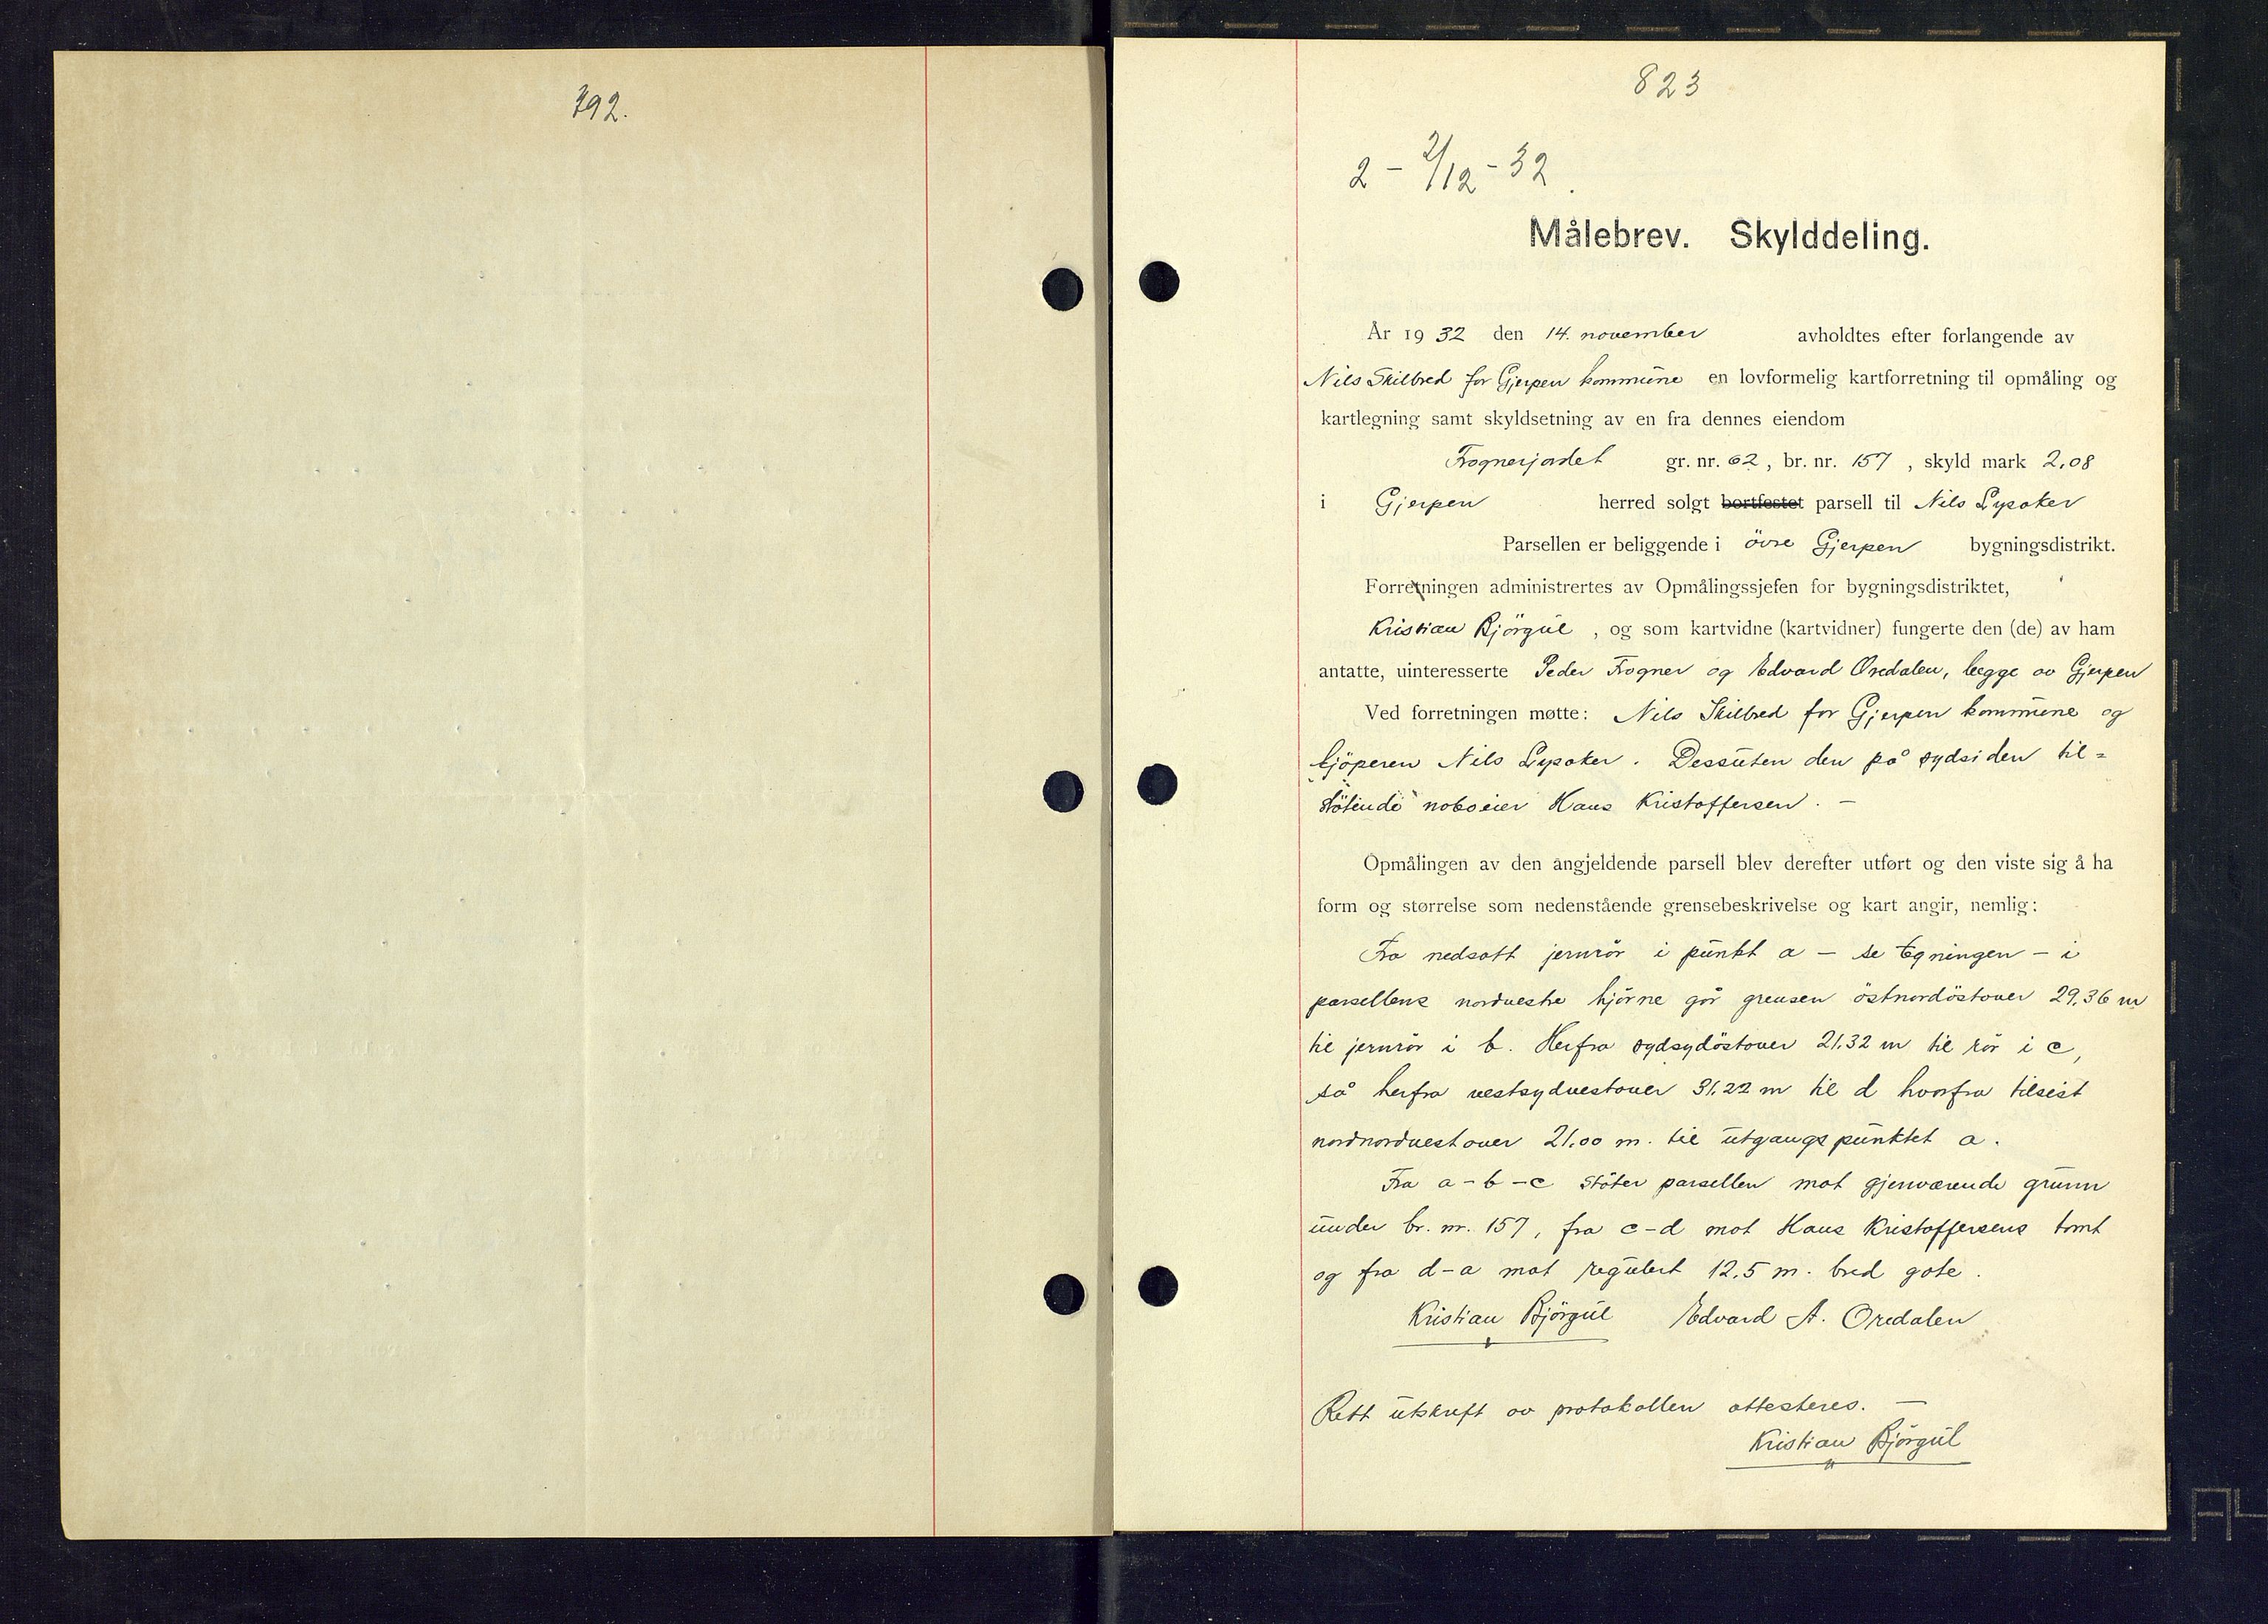 792.
823
2 - 2/12 - 32.
Målebrev. Skylddeling.
År 1932 den 14. november avholdtes efter forlangende av
Nils Skilbred for Gjerpen kommune en lovformelig kartforretning til opmåling og
kartlegning samt skyldsetning av en fra dennes eiendom
Frognerjordet gr. nr. 62, br. nr. 157, skyld mark 2,08
i Gjerpen herred solgt bortfestet parsell til Nils Lysaker
Parsellen er beliggende i övre Gjerpen bygningsdistrikt.
Forretningen administrertes av Opmålingssjefen for bygningsdistriktet,
Kristian Björgul, og som kartvidne (kartvidner) fungerte den (de) av ham
antatte, uinteresserte Peder Frogner og Edvard Oredalen, begge av Gjerpen
Ved forretningen møtte: Nils Skilbred for Gjerpen kommune og
kjöperen Nils Lysaker. Dessuten den på sydsiden til=
stötende naboeier Hans Kristoffersen. —
Opmålingen av den angjeldende parsell blev derefter utført og den viste sig å ha
form og størrelse som nedenstående grensebeskrivelse og kart angir, nemlig:
Fra nedsatt jernrör i punkt a — se tegningen — i
parsellens nordvestre hjörne går grensen östnordöstover 29,36 m
til jernrör i b. Herfra sydsydöstover 21,32 m til rör i c,
så herfra vestsydvestover 31,22 m til d hvorfra tilsist
nordnordvestover 21,00 m. til utgangspunktet a.
Fra a - b - c stöter parsellen mot gjenværende grunn
under br. nr. 157, fra c - d mot Hans Kristoffersens tomt
og fra d - a mot regulert 12,5 m. bred gate.
Kristian Björgul Edvard A. Oredalen
Rett utskrift av protokollen attesteres. —
Kristian Björgul